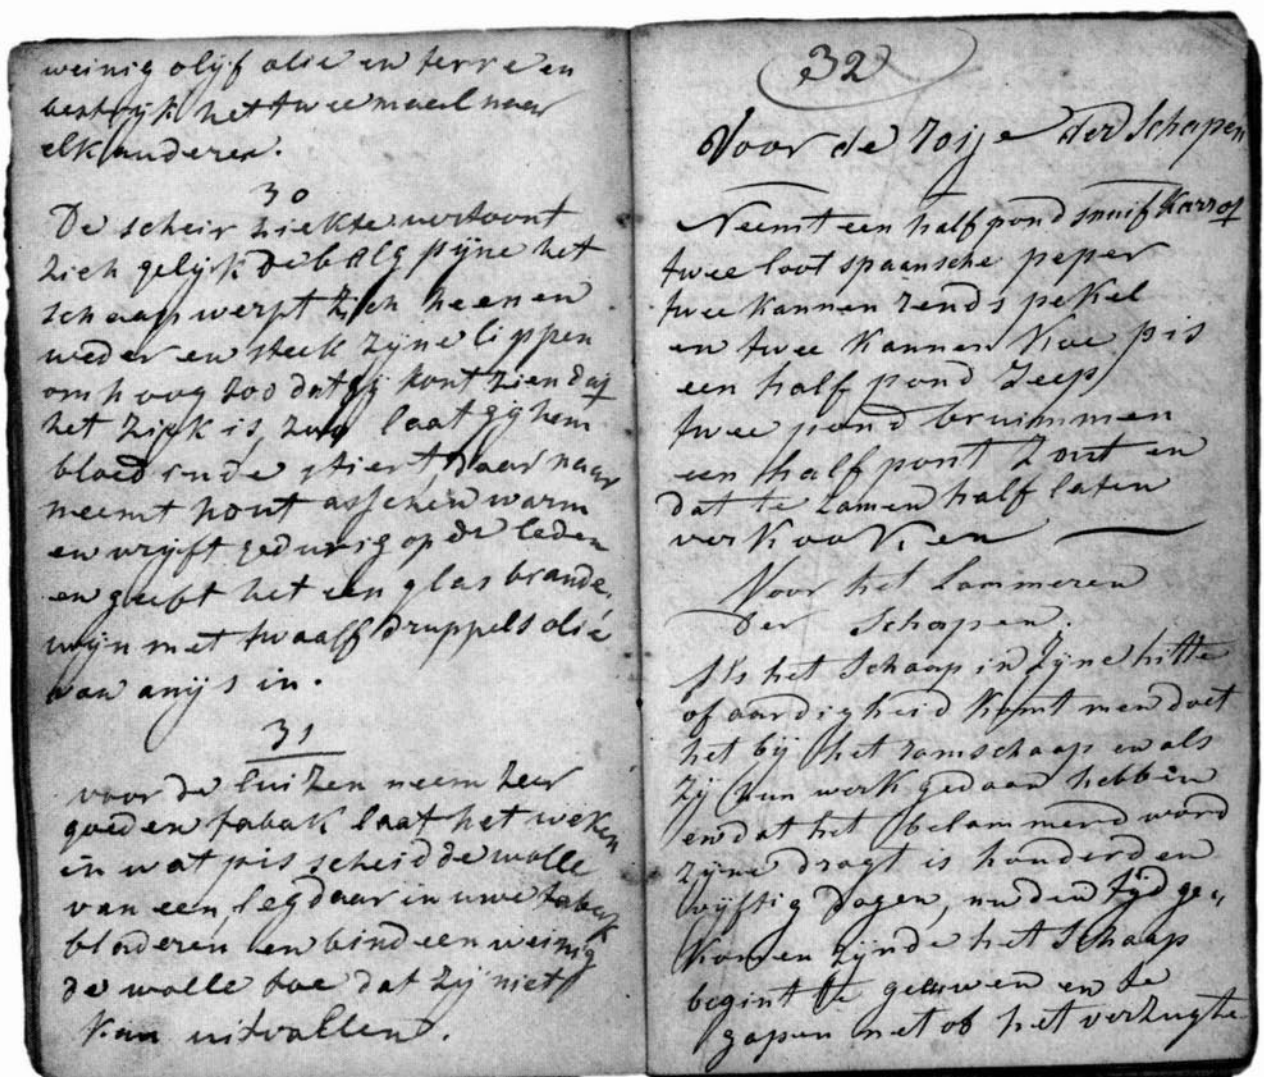 weinig olijf olie en terre en
bestrijk het twee maal naar
elkanderen.
30
De scheir ziekte vertoont
zich gelijk de balg pijne het
schaap werpt zich heen en
weder en steek zijne lippen
om hoog zoo dat gij kont zien dat
het ziek is, laat gij hem
bloed in de stiert, daar naar
neemt hout asschen warm
en wrijft gedurig op de leden
en geeft het een glas brande,
wijn met twaalf druppels olie
van anijs in.
31
voor de luizen neem zeer
goeden tabak laat het weken
in wat pis scheid de wolle
van een, leg daar in uwe tabak
bladeren en bind een weinig
de wolle toe dat zij niet
kan uitvallen.
32
Voor de roije der Schapen
Neemt een half pond snuif karrot
twee loot spaansche peper
twee kannen rends pekel
en twee kannen koe pis
een half pond zeep
twee pond bruimmen
een half pont zout en
dat te zamen half laten
verkooken
Voor het Lammeren
der Schapen.
Als het Schaap in zijne hitte
of aardigheid komt men doet
het bij het ramschaap en als
zij hun werk gedaan hebben
en dat het belammerd word
zijne dragt is honderd en
vijftig dagen, nu den tijd ge„
komen zijnde het Schaap
begint te geeuwen en te
gapen net of het verzugte